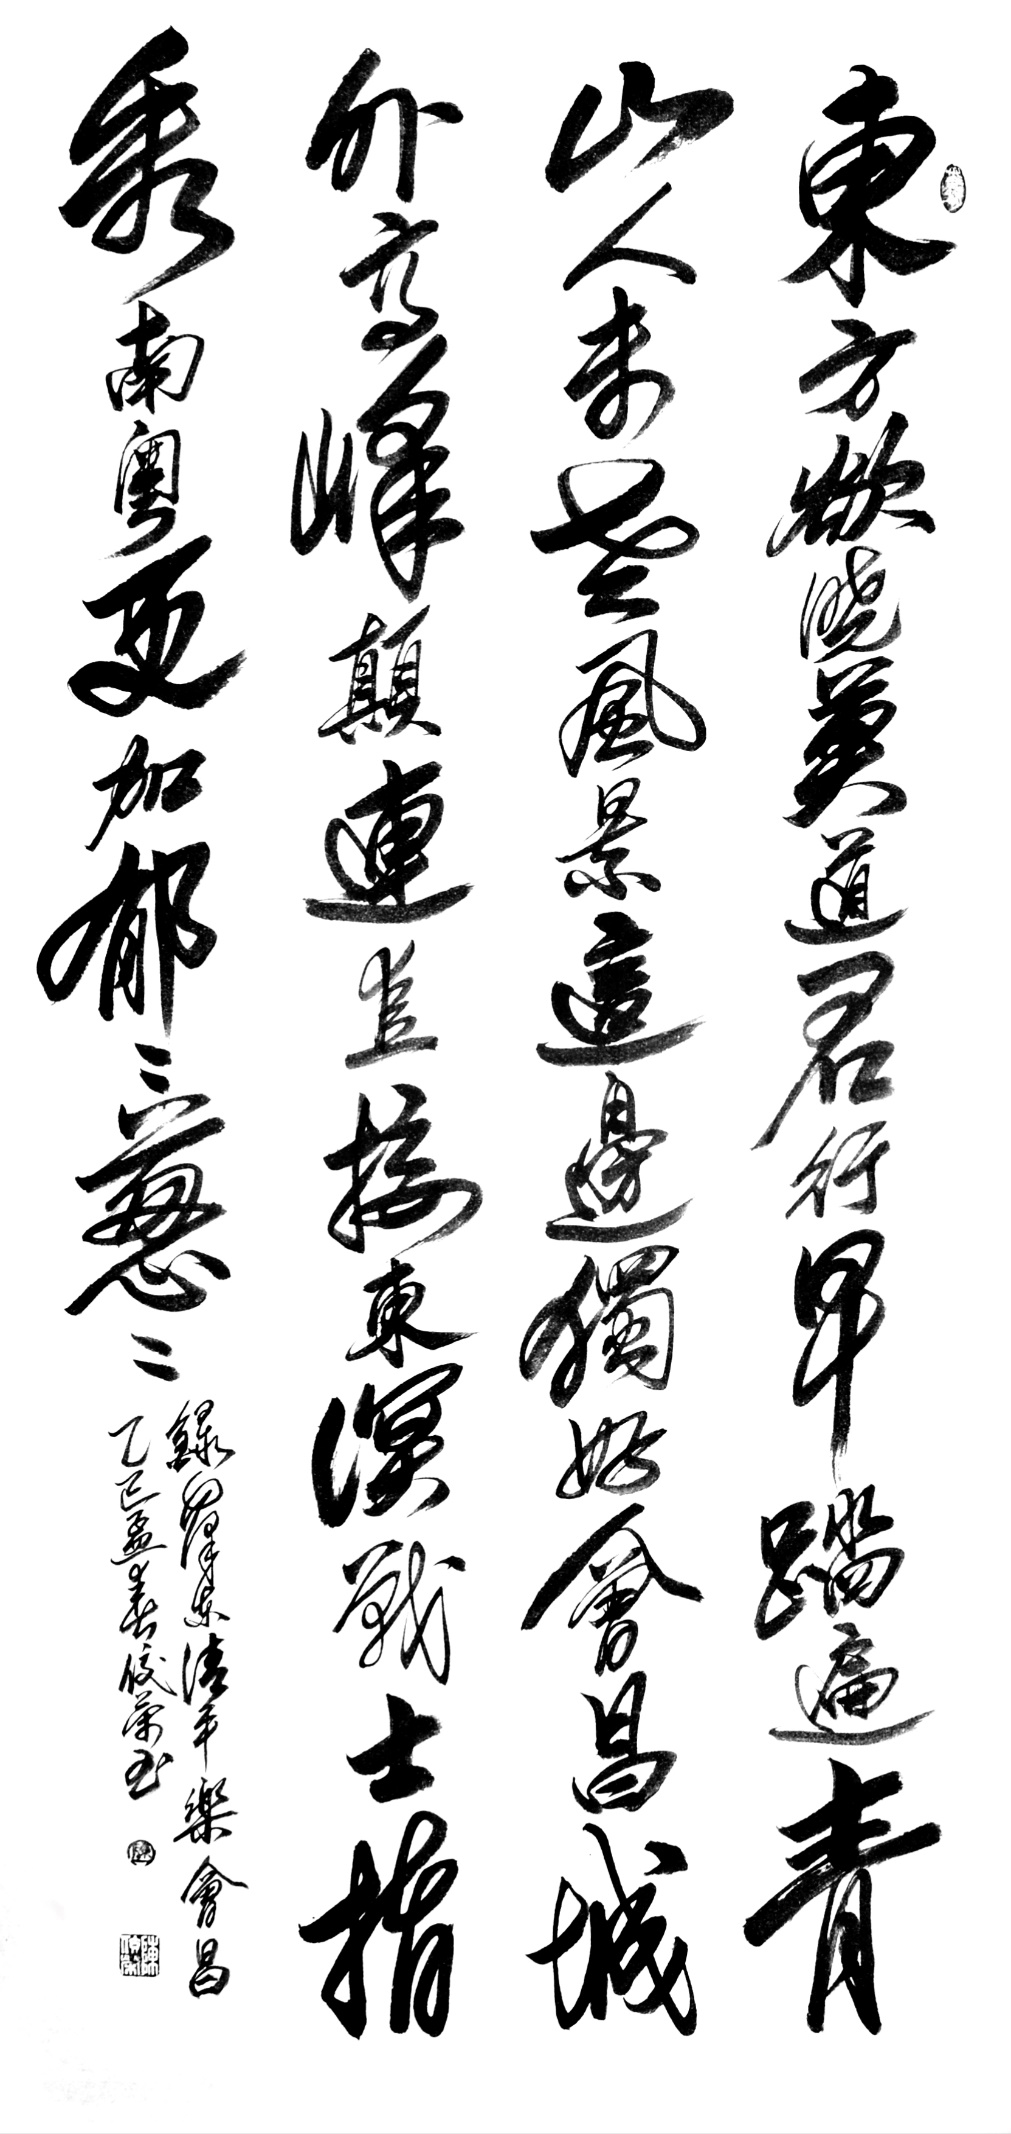 東方欲曉莫道君行早踏遍青
山人未老風景這邊獨好會昌城
外高峰顛連直接東溟戰士指
看南粵更加郁〻蔥〻
錄澤東清平樂會昌
乙巳孟春俊榮书